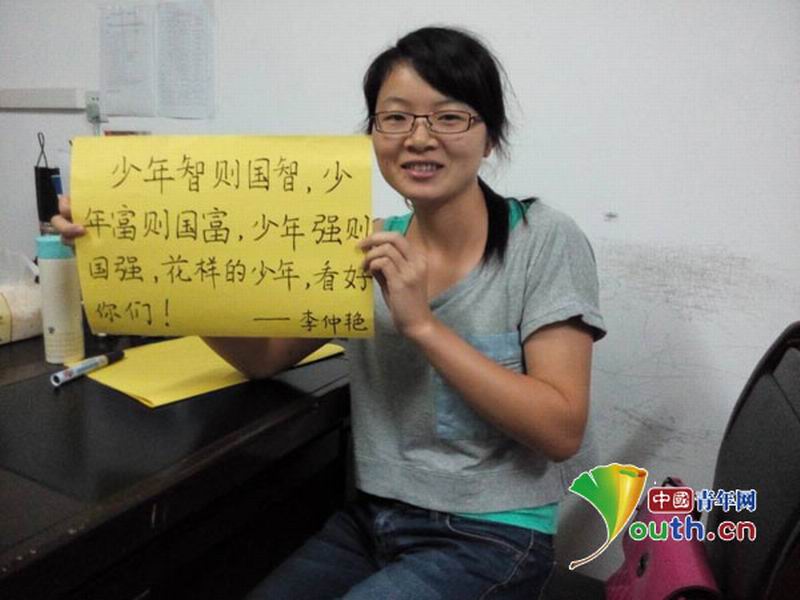 少年智则国智,少
年富则国富,少年强则
国强,花样的少年,看好
你们!
——李仲艳
中國青年网
Youth.cn